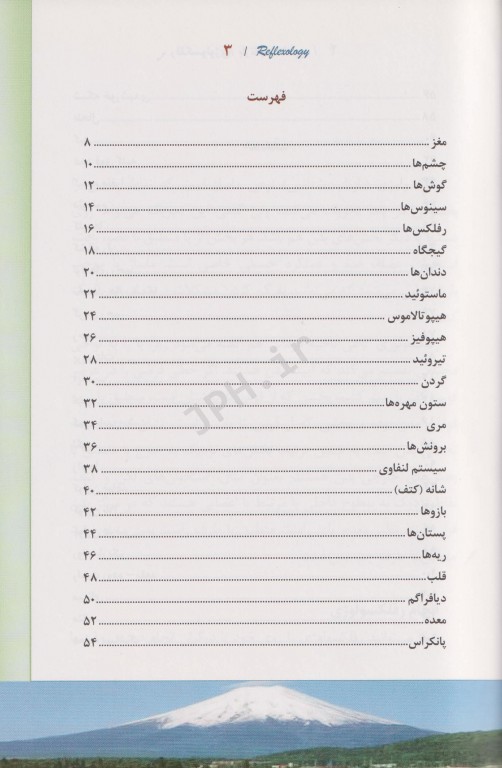 Reflexology / ۳
فهرست
مغز ۸
چشم‌ها ۱۰
گوش‌ها ۱۲
سینوس‌ها ۱۴
رفلکس‌ها ۱۶
گیجگاه ۱۸
دندان‌ها ۲۰
ماستوئید ۲۲
هیپوتالاموس ۲۴
هیپوفیز ۲۶
تیروئید ۲۸
گردن ۳۰
ستون مهره‌ها ۳۲
مری ۳۴
برونش‌ها ۳۶
سیستم لنفاوی ۳۸
شانه (کتف) ۴۰
بازوها ۴۲
پستان‌ها ۴۴
ریه‌ها ۴۶
قلب ۴۸
دیافراگم ۵۰
معده ۵۲
پانکراس ۵۴
JPH.ir